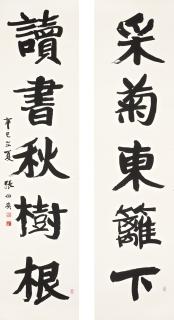 采菊東籬下
讀書秋樹根
辛巳之夏
張伯英